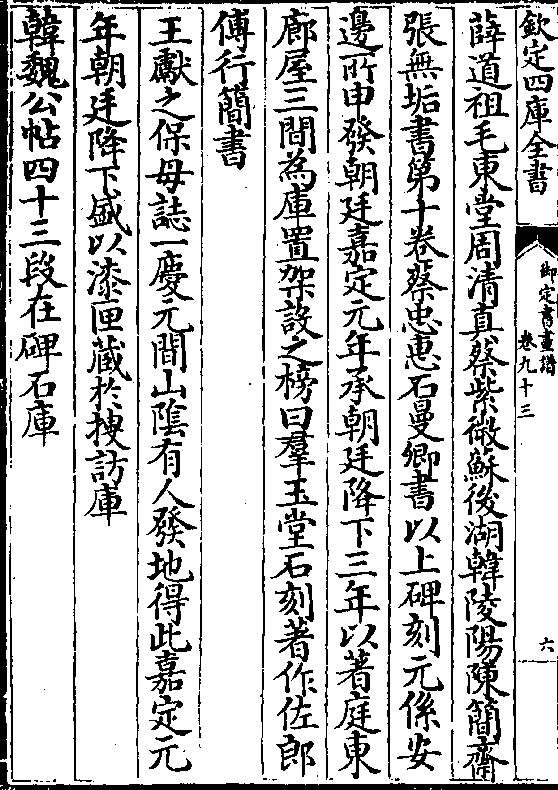 欽定四庫全書
御定書畫譜
卷九十三
六
薛道祖毛東堂周清真蔡紫微蘇後湖韓陵陽陳簡齋
張無垢書第十卷蔡忠惠石曼卿書以上碑刻元係安
邊所申發朝廷嘉定元年承朝廷降下三年以著庭東
廊屋三間為庫置架設之榜曰羣玉堂石刻著作佐郎
傅行簡書
王獻之保母誌一慶元間山隂有人發地得此嘉定元
年朝廷降下盛以漆匣藏於搜訪庫
韓魏公帖四十三段在碑石庫